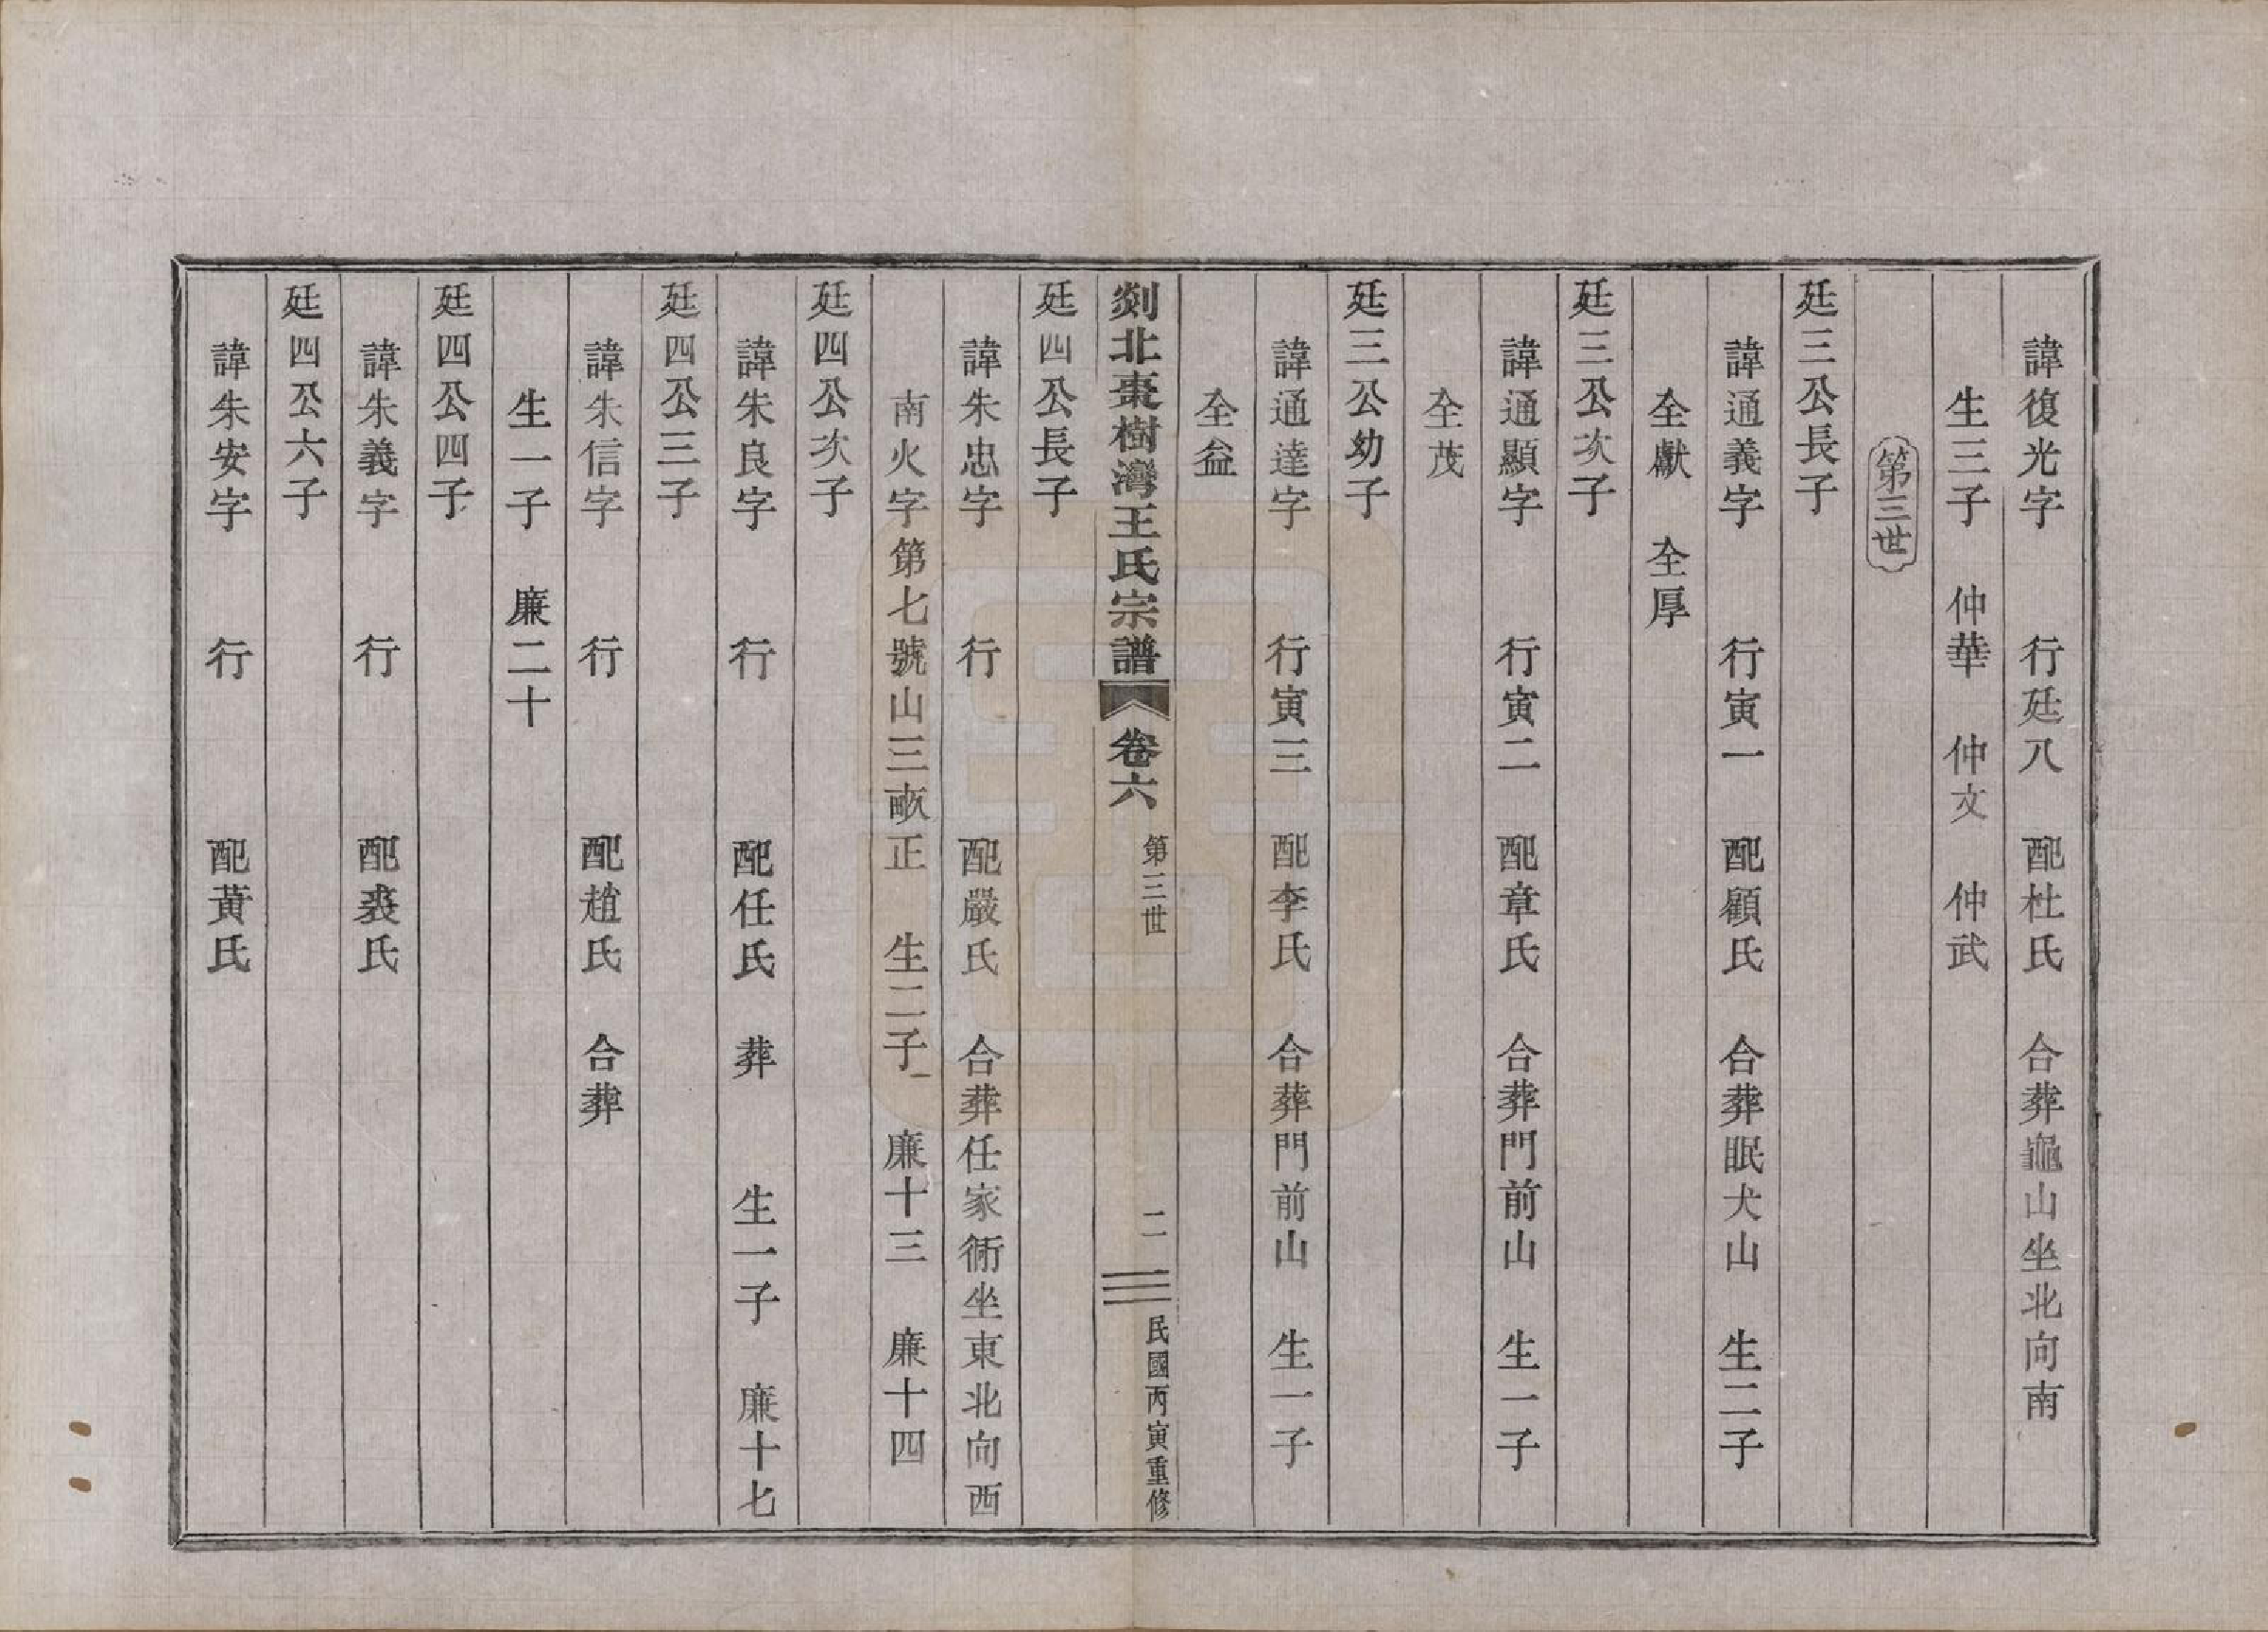 諱復光字　行廷八　配杜氏　合葬龜山坐北向南
生三子　仲華　仲文　仲武
第三世
廷三公長子
諱通義字　行寅一　配顧氏　合葬眠犬山　生二子
全獻　全厚
廷三公次子
諱通顯字　行寅二　配章氏　合葬門前山　生一子
全茂
廷三公幼子
諱通達字　行寅三　配李氏　合葬門前山　生一子
全益
剡北棗樹灣王氏宗譜　卷六　第三世　二　民國丙寅重修
廷四公長子
諱朱忠字　行　配嚴氏　合葬任家衖坐東北向西
南火字第七號山三畝正　生二子　廉十三　廉十四
廷四公次子
諱朱良字　行　配任氏　葬　生一子　廉十七
廷四公三子
諱朱信字　行　配趙氏　合葬
生一子　廉二十
廷四公四子
諱朱義字　行　配裘氏
廷四公六子
諱朱安字　行　配黃氏